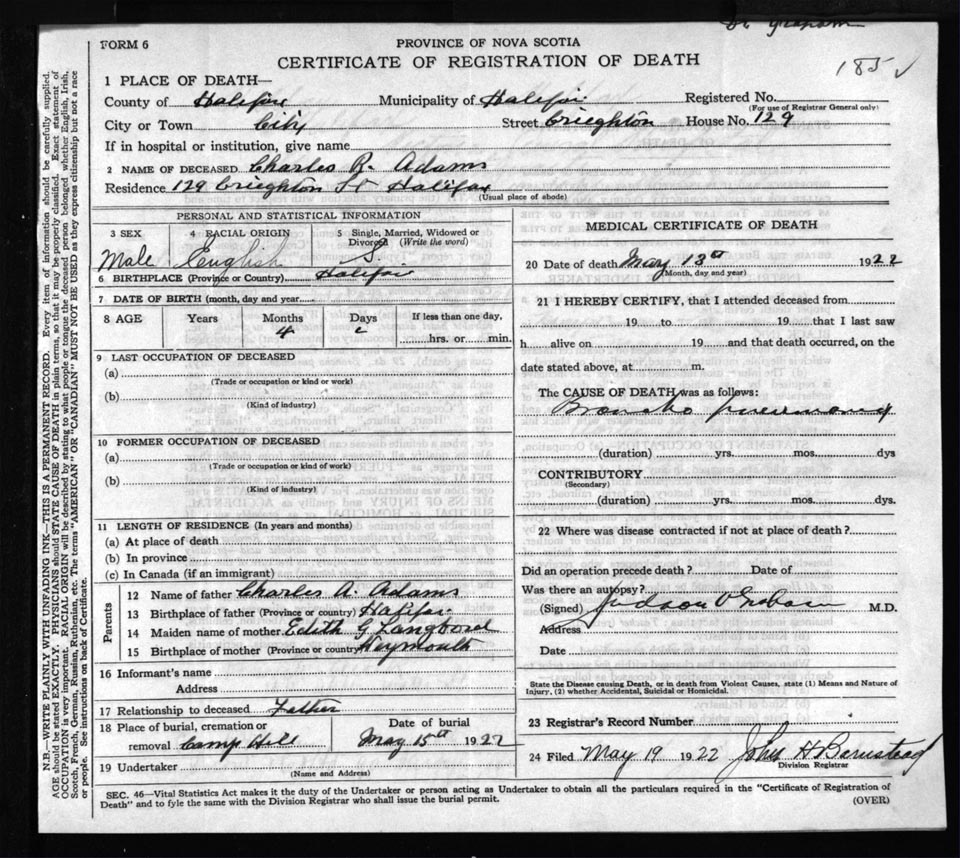 Dr Graham
FORM 6
PROVINCE OF NOVA SCOTIA
CERTIFICATE OF REGISTRATION OF DEATH
185 ✓
1 PLACE OF DEATH—
County of Halifax Municipality of Halifax Registered No.
(For use of Registrar General only)
City or Town City Street Crieghton House No. 129
If in hospital or institution, give name
2 NAME OF DECEASED Charles R. Adams
Residence 129 Crieghton St Halifax
(Usual place of abode)
PERSONAL AND STATISTICAL INFORMATION
3 SEX 4 RACIAL ORIGIN 5 Single, Married, Widowed or
Divorced (Write the word)
Male English S.
6 BIRTHPLACE (Province or Country) Halifax
7 DATE OF BIRTH (month, day and year)
8 AGE Years Months Days If less than one day,
4 hrs. or min.
9 LAST OCCUPATION OF DECEASED
(a)
(Trade or occupation or kind or work)
(b)
(Kind of industry)
10 FORMER OCCUPATION OF DECEASED
(a)
(Trade or occupation or kind or work)
(b)
(Kind of industry)
11 LENGTH OF RESIDENCE (In years and months)
(a) At place of death
(b) In province
(c) In Canada (if an immigrant)
Parents
12 Name of father Charles A. Adams
13 Birthplace of father (Province or country) Halifax
14 Maiden name of mother Edith G
15 Birthplace of mother (Province or country) Weymouth
16 Informant's name
Address
17 Relationship to deceased Father
18 Place of burial, cremation or Date of burial
removal Camp Hill May 15th 1922
19 Undertaker
(Name and Address)
MEDICAL CERTIFICATE OF DEATH
20 Date of death May 13th 1922
(Month, day and year)
21 I HEREBY CERTIFY, that I attended deceased from
19 to 19 that I last saw
h alive on 19 and that death occurred, on the
date stated above, at m.
The CAUSE OF DEATH was as follows:
Broncho pneumonia
(duration) yrs. mos. dys
CONTRIBUTORY
(Secondary)
(duration) yrs. mos. dys.
22 Where was disease contracted if not at place of death?
Did an operation precede death? Date of
Was there an autopsy?
(Signed) Judson V Graham M.D.
Address
Date
State the Disease causing Death, or in death from Violent Causes, state (1) Means and Nature of
Injury, (2) whether Accidental, Suicidal or Homicidal.
23 Registrar's Record Number
24 Filed May 19 1922 John H
Division Registrar
SEC. 46—Vital Statistics Act makes it the duty of the Undertaker or person acting as Undertaker to obtain all the particulars required in the "Certificate of Registration of
Death" and to fyle the same with the Division Registrar who shall issue the burial permit.
(OVER)
N.B.—WRITE PLAINLY WITH UNFADING INK—THIS IS A PERMANENT RECORD. Every item of information should be carefully supplied.
AGE should be stated EXACTLY. PHYSICIANS should STATE CAUSE OF DEATH in plain terms, so that it may be properly classified. Exact statement of
OCCUPATION is very important. RACIAL ORIGIN will be described by stating to what people or tongue the deceased person belonged whether English, Irish,
Scotch, French, German, Russian, Ruthenian, etc. The terms "AMERICAN" OR "CANADIAN" MUST NOT BE USED as they express citizenship but not a race
or people. See instructions on back of Certificate.